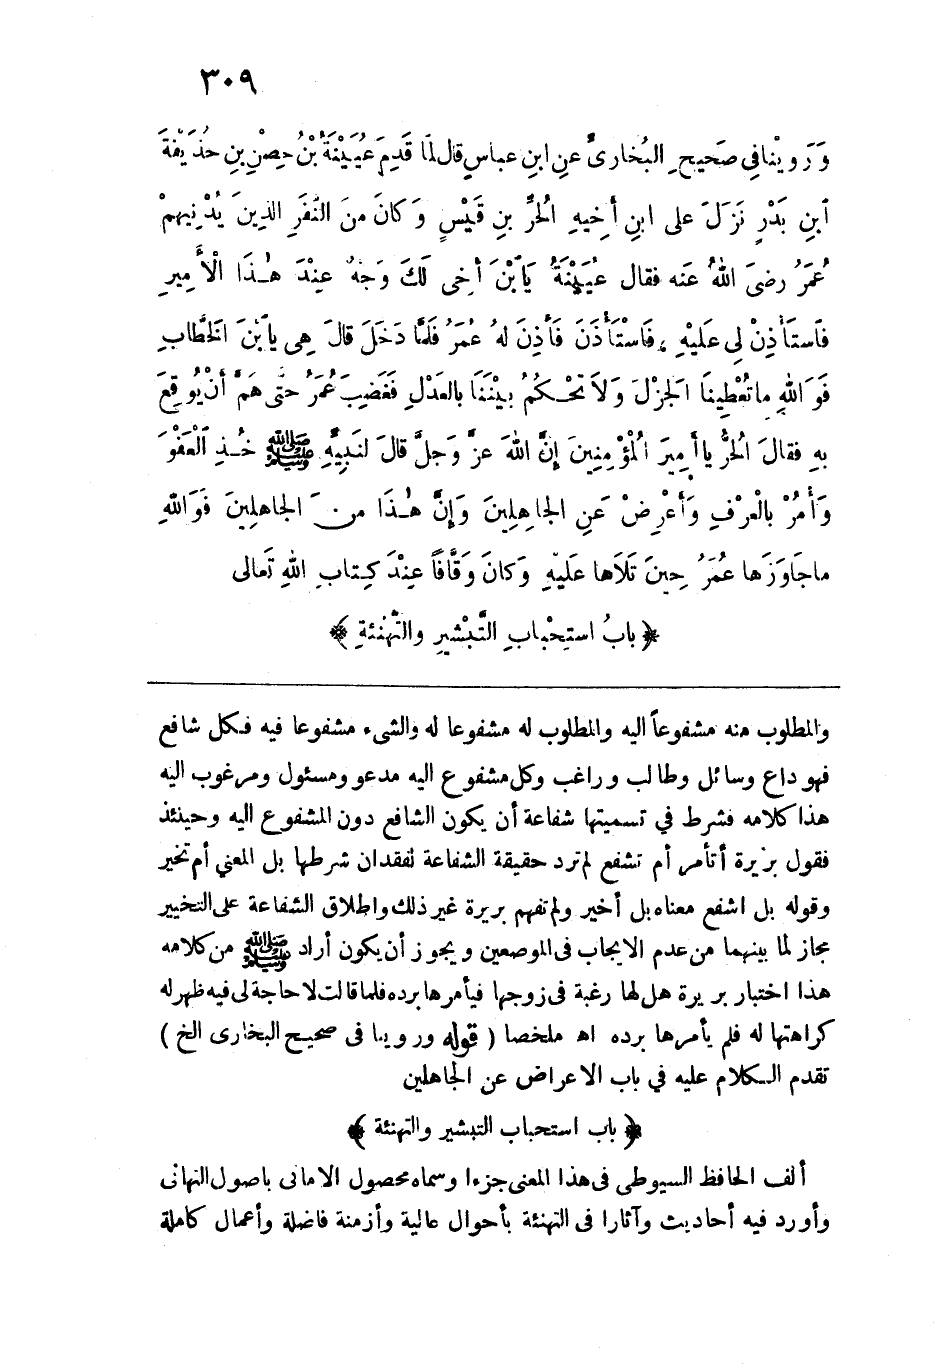 ٣٠٩
وَرَوَيْنا في صَحيحِ البُخارىِّ عنِ ابنِ عباسٍ قال لمَّا قَدِمَ عُيَيْنَةُ بْنُ حِصْنِ بنِ حُذَيْفَةَ
ابنِ بَدْرٍ نَزَلَ على ابنِ أَخيهِ الحُرِّ بنِ قَيْسٍ وَكانَ منَ النَّفَرِ الذِينَ يُدْنِيهِمْ
عُمَرُ رضىَ اللهُ عنه فقال عُيَيْنَةُ يَاَبْنَ أخى لَكَ وَجْهٌ عِنْدَ هٰذَا الْأَمِيرِ
فَاسْتَأْذِنْ لِى عَلَيْهِ ، فَاسْتَأْذَنَ فَأَذِنَ لهُ عُمَرُ فَلَمَّا دَخَلَ قالَ هِى يابْنَ الخَطَّابِ
فَوَاللهِ ما تُعْطِينا الْجَزْلَ وَلاَ تَحْكُمُ بَيْنَنَا بالعَدْلِ فَغَضِبَ عُمَرُ حتَّى هَمَّ أنْ يُوقِعَ
بهِ فقالَ الحُرُّ ياأَمِيرَ الْمُؤْمِنِينَ إنَّ اللهَ عزَّ وَجلَّ قالَ لنَبِيِّهِ ﷺ خُذِ الْعَفْوَ
وَأْمُرْ بالْعرْفِ وَأَعْرِضْ عَنِ الجاهِلِينَ وَإنَّ هٰذَا منَ الجاهلِينَ فَوَاللهِ
ما جَاوَزَها عُمَرُ حِينَ تَلَاها عَلَيْهِ وَكانَ وَقَّافاً عِنْدَ كِتابِ اللهِ تَعالى
﴿ بابُ استِحْبابِ التَّبْشيرِ والتَّهْنُئةِ ﴾
والمطلوب منه مشفوعاً اليه والمطلوب له مشفوعا له والشىء مشفوعا فيه فكل شافع
فهو داع وسائل وطالب وراغب وكل مشفوع اليه مدعو ومسئول ومرغوب اليه
هذا كلامه فشرط في تسميتها شفاعة أن يكون الشافع دون المشفوع اليه وحينئذ
فقول بريرة أتأمر أم تشفع لم ترد حقيقة الشفاعة لفقدان شرطها بل المعني أم تخير
وقوله بل اشفع معناه بل أخير ولم تفهم بريرة غير ذلك واطلاق الشفاعة على التخيير
مجاز لما بينهما من عدم الايجاب فى الموضعين ويجوز أن يكون أراد ﷺ من كلامه
هذا اختبار بريرة هل لها رغبة فى زوجها فيأمرها برده فلما قالت لا حاجة لى فيه ظهر له
كراهتها له فلم يأمرها برده اه ملخصا ( قوله وروينا فى صحيح البخارى الخ )
تقدم الكلام عليه في باب الاعراض عن الجاهلين
﴿ باب استحباب التبشير والتهنئة ﴾
ألف الحافظ السيوطى فى هذا المعنى جزءا وسماه محصول الامانى باصول التهانى
وأورد فيه أحاديث وآثارا فى التهنئة بأحوال عالية وأزمنة فاضلة وأعمال كاملة